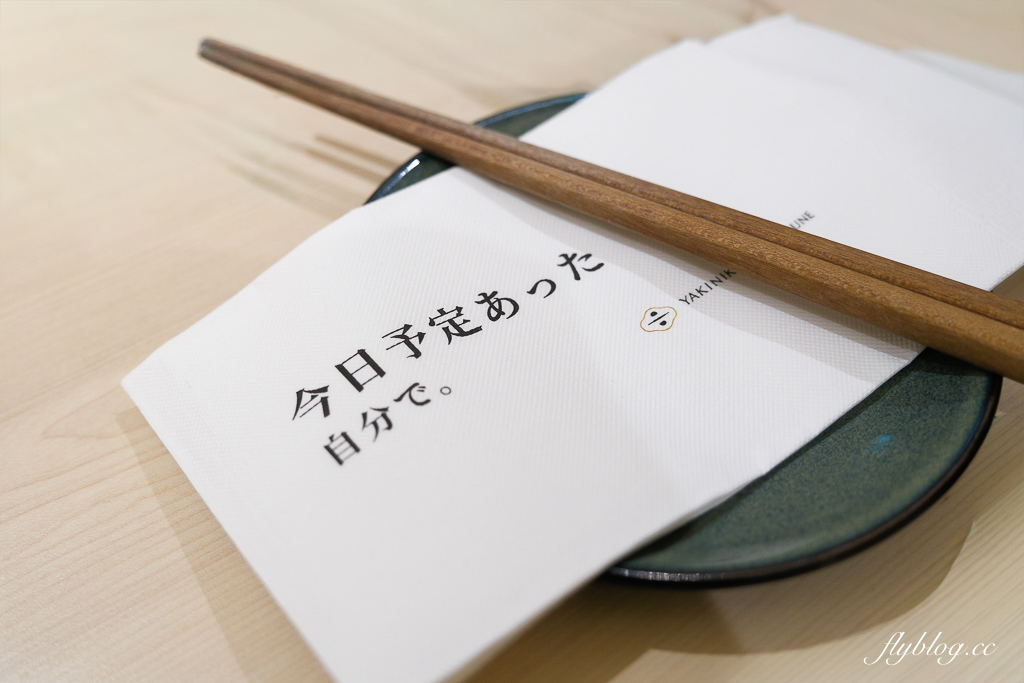 今日予定あった
自分で。
YAKINIK UNE
flyblog.cc